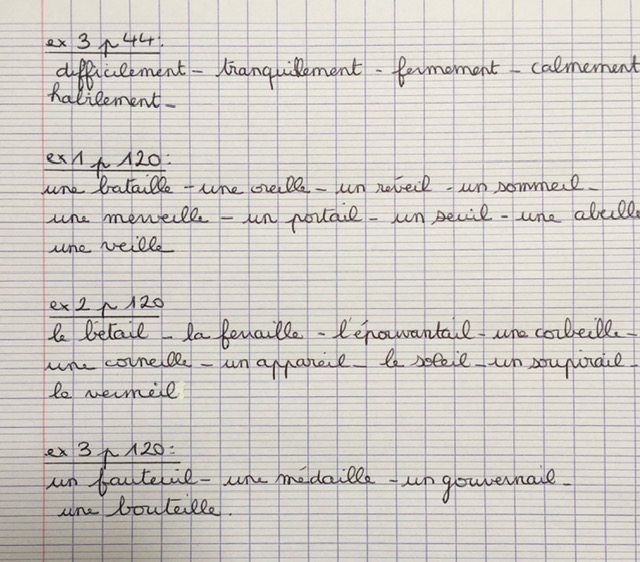 ex 3 p 44:
difficilement - tranquillement - fermement - calmement
habilement -
ex 1 p 120:
une bataille - une oreille - un réveil - un sommeil -
une merveille - un portail - un seuil - une abeille
une veille
ex 2 p 120
le bétail - la ferraille - l'épouvantail - une corbeille -
une corneille - un appareil - le soleil - un soupirail -
le vermeil
ex 3 p 120:
un fauteuil - une médaille - un gouvernail -
une bouteille.